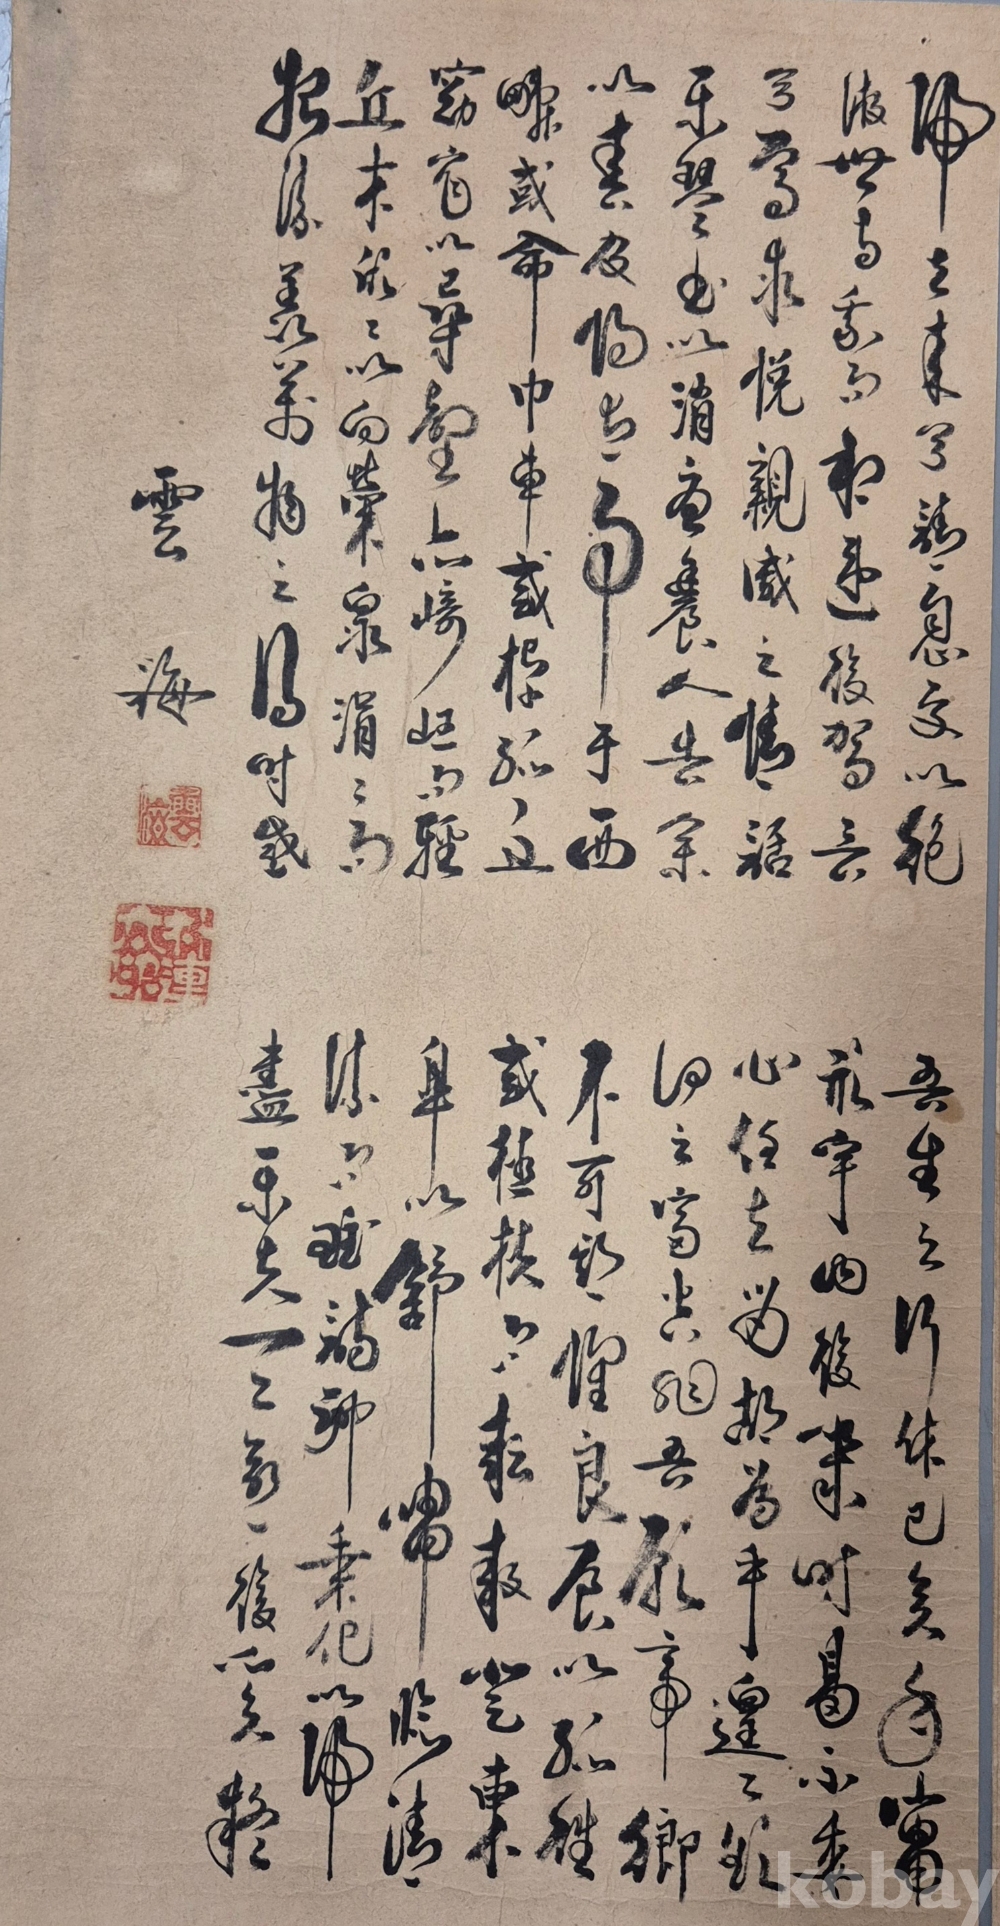 歸去來兮請息交以絶
游世与我而相違復駕言
兮焉求悅親戚之情話
樂琴書以消憂農人告余
以春及將有事于西
疇或命巾車或棹孤舟
窈窕以尋壑亦崎嶇而經
丘木欣〻以向榮泉涓〻而
始流羨萬物之得時感
吾生之行休已矣乎寓
形宇內復幾時曷不委
心任去留胡為乎遑〻欲
何之富貴非吾願帝鄉
不可期懷良辰以孤往
或植杖而耘耔登東
皐以舒嘯臨清
流而賦詩聊乘化以歸
盡樂夫天命復奚疑
雲
kobay